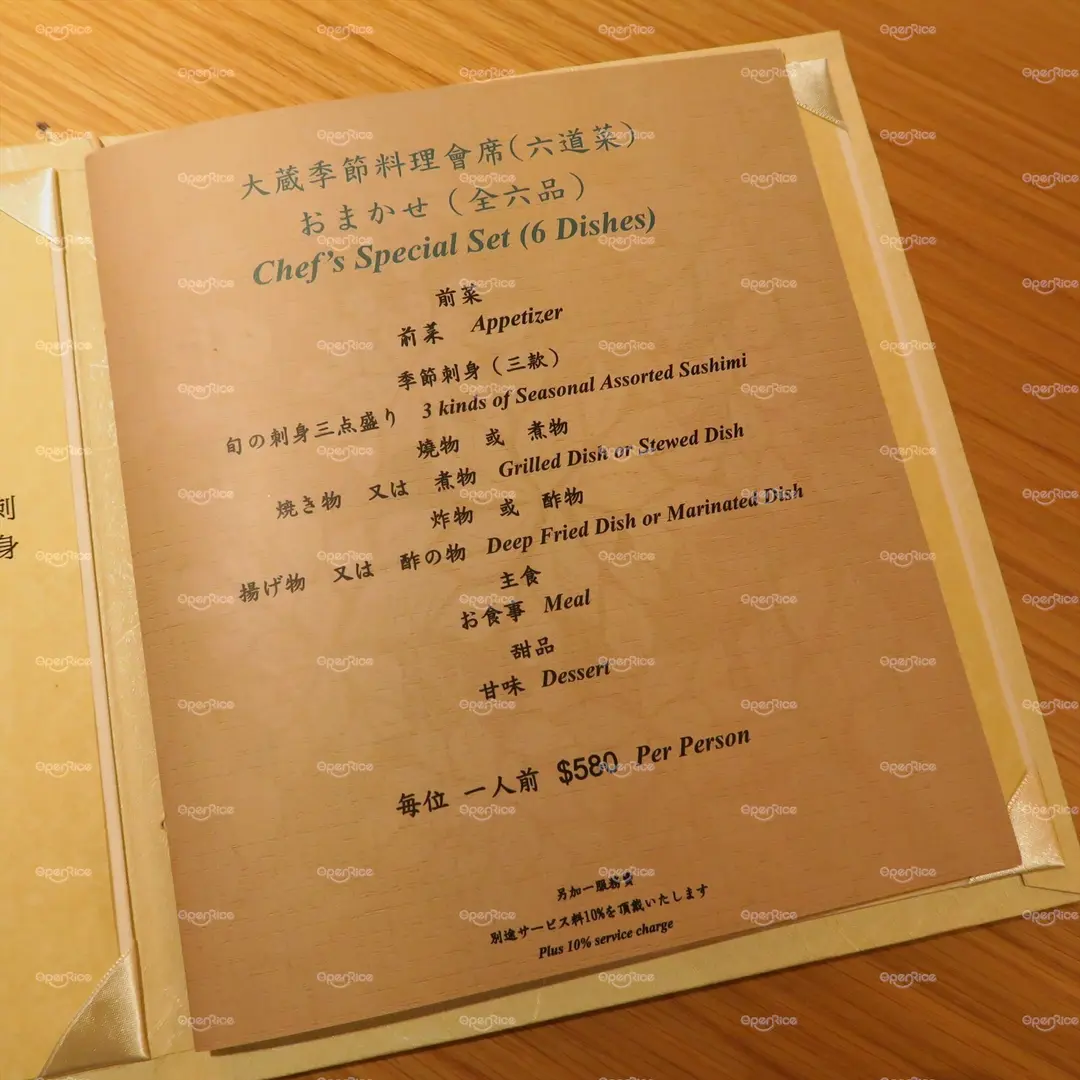 大蔵季節料理會席(六道菜)
おまかせ (全六品)
Chef's Special Set (6 Dishes)
前菜
前菜 Appetizer
季節刺身 (三款)
旬の刺身三点盛り 3 kinds of Seasonal Assorted Sashimi
燒物 或 煮物
焼き物 又は 煮物 Grilled Dish or Stewed Dish
炸物 或 酢物
揚げ物 又は 酢の物 Deep Fried Dish or Marinated Dish
主食
お食事 Meal
甜品
甘味 Dessert
每位 一人前 $580 Per Person
另加一服務費
別途サービス料10%を頂戴いたします
Plus 10% service charge
刺身
OpenRice